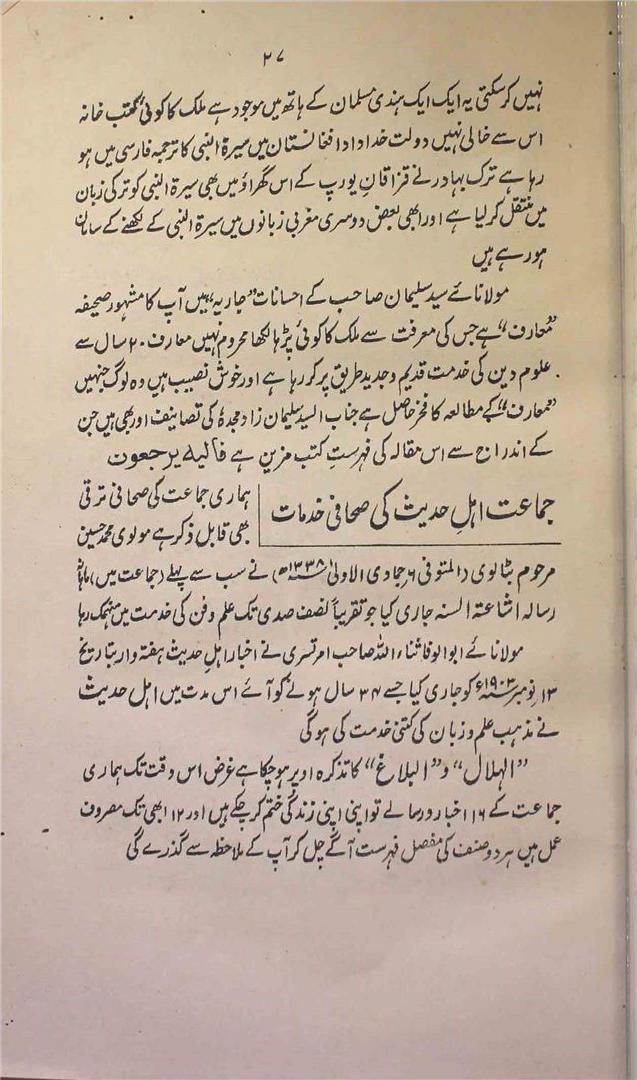 ۲۷
نہیں کر سکتی یہ ایک ایک ہندی مسلمان کے ہاتھ میں موجود ہے ملک کا کوئی کتب خانہ
اس سے خالی نہیں دولت خداداد افغانستان میں سیرۃ النبی کا ترجمہ فارسی میں ہو
رہا ہے ترک بہادر نے قزاقانِ یورپ کے اس گھراؤ میں بھی سیرۃ النبی کو ترکی زبان
میں منتقل کر لیا ہے اور ابھی بعض دوسری مغربی زبانوں میں سیرۃ النبی کے لکھنے کے سامان
ہو رہے ہیں
مولانائے سید سلیمان صاحب کے احسانات "جاریہ" ہیں آپ کا مشہور صحیفہ
"معارف" ہے جس کی معرفت سے ملک کا کوئی پڑہا لکھا محروم نہیں معارف ۲۰ سال سے
علوم دین کی خدمت قدیم و جدید طریق پر کر رہا ہے اور خوش نصیب ہیں وہ لوگ جنہیں
"معارف" کے مطالعہ کا فخر حاصل ہے جناب السید سلیمان زاد مجدہٗ کی تصانیف اور بھی ہیں جن
کے اندراج سے اس مقالہ کی فہرستِ کتب مزین ہے فالیہ یرجعون
جماعت اہلِ حدیث کی صحافی خدمات
ہماری جماعت کی صحافی ترقی
بھی قابل ذکر ہے مولوی محمد حسین
مرحوم بٹالوی (المتوفی ۶ جمادی الاولیٰ ۱۳۳۸ھ) نے سب سے پہلے (جماعت میں) ماہانہ
رسالہ اشاعۃ السنہ جاری کیا جو تقریباً نصف صدی تک علم و فن کی خدمت میں منہمک رہا
مولانائے ابو الوفا ثناء اللہ صاحب امرتسری نے اخبار اہلِ حدیث ہفتہ وار بتاریخ
۱۳ نومبر ۱۹۰۳ء کو جاری کیا جسے ۳۴ سال ہونے کو آئے اس مدت میں اہل حدیث
نے مذہب علم و زبان کی کتنی خدمت کی ہو گی
"الہلال" و "البلاغ" کا تذکرہ اوپر ہو چکا ہے غرض اس وقت تک ہماری
جماعت کے ۱۶ اخبار و رسالے تو اپنی اپنی زندگی ختم کر چکے ہیں اور ۱۲ ابھی تک مصروف
عمل ہیں ہر دو صنف کی مفصل فہرست آگے چل کر آپ کے ملاحظہ سے گذرے گی